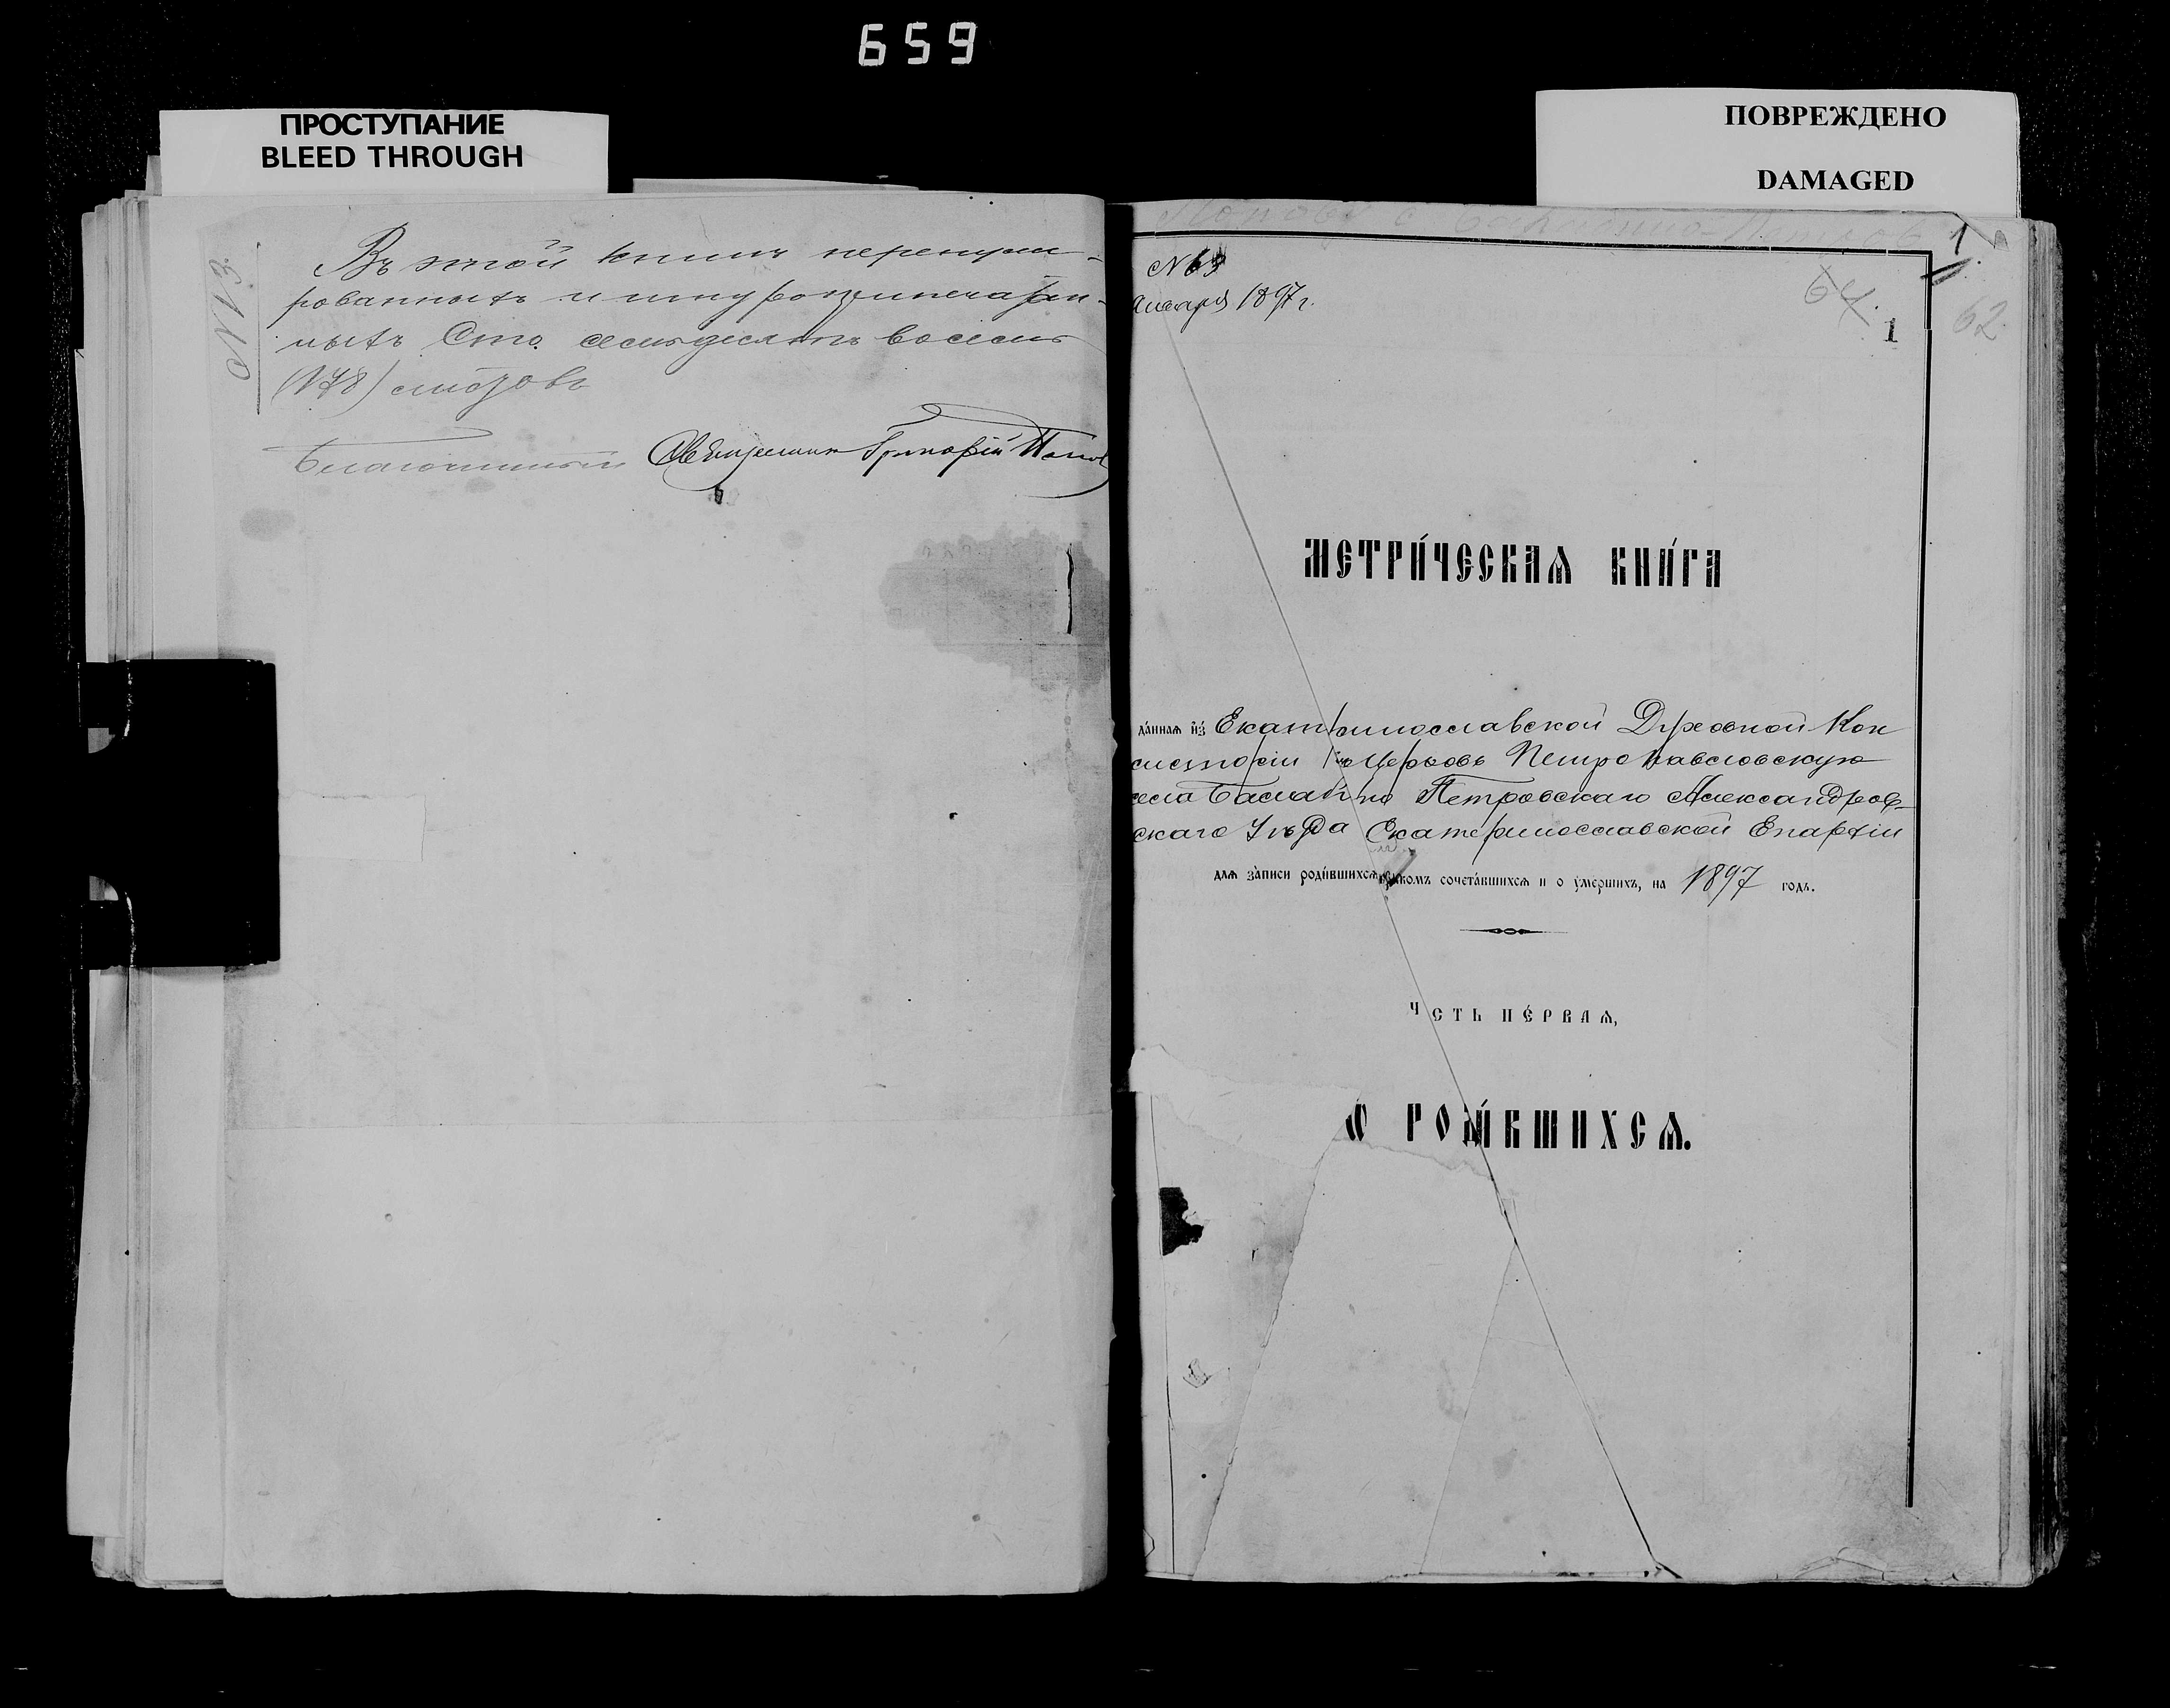 659
ПРОСТУПАНИЕ
BLEED THROUGH
ПОВРЕЖДЕНО
DAMAGED
№ 13.
Въ этой книгѣ перенуме-
рованныхъ и шнурозапечатан-
ныхъ Сто семьдесятъ восемь
(178) листовъ
Благочинный Священникъ Григорій Попов
1
№ 63
Января 1897 г.
64.
1
62
МЕТРИ́ЧЕСКАѦ КНИ́ГА
да́ннаѧ и҆з̾ Екатеринославской Духовной Кон
систоріи въ Церковь Петропавловскую
села Басань но Петровскаго Александров-
скаго Уѣзда Екатеринославской Епархіи
длѧ за́писи роди́вшихсѧ, бракомъ сочета́вшихсѧ и о у҆ме́ршихъ, на 1897 годъ.
Ч СТЬ ПЕ́РВАѦ,
Ѡ РОДИ́ВШИХСѦ.